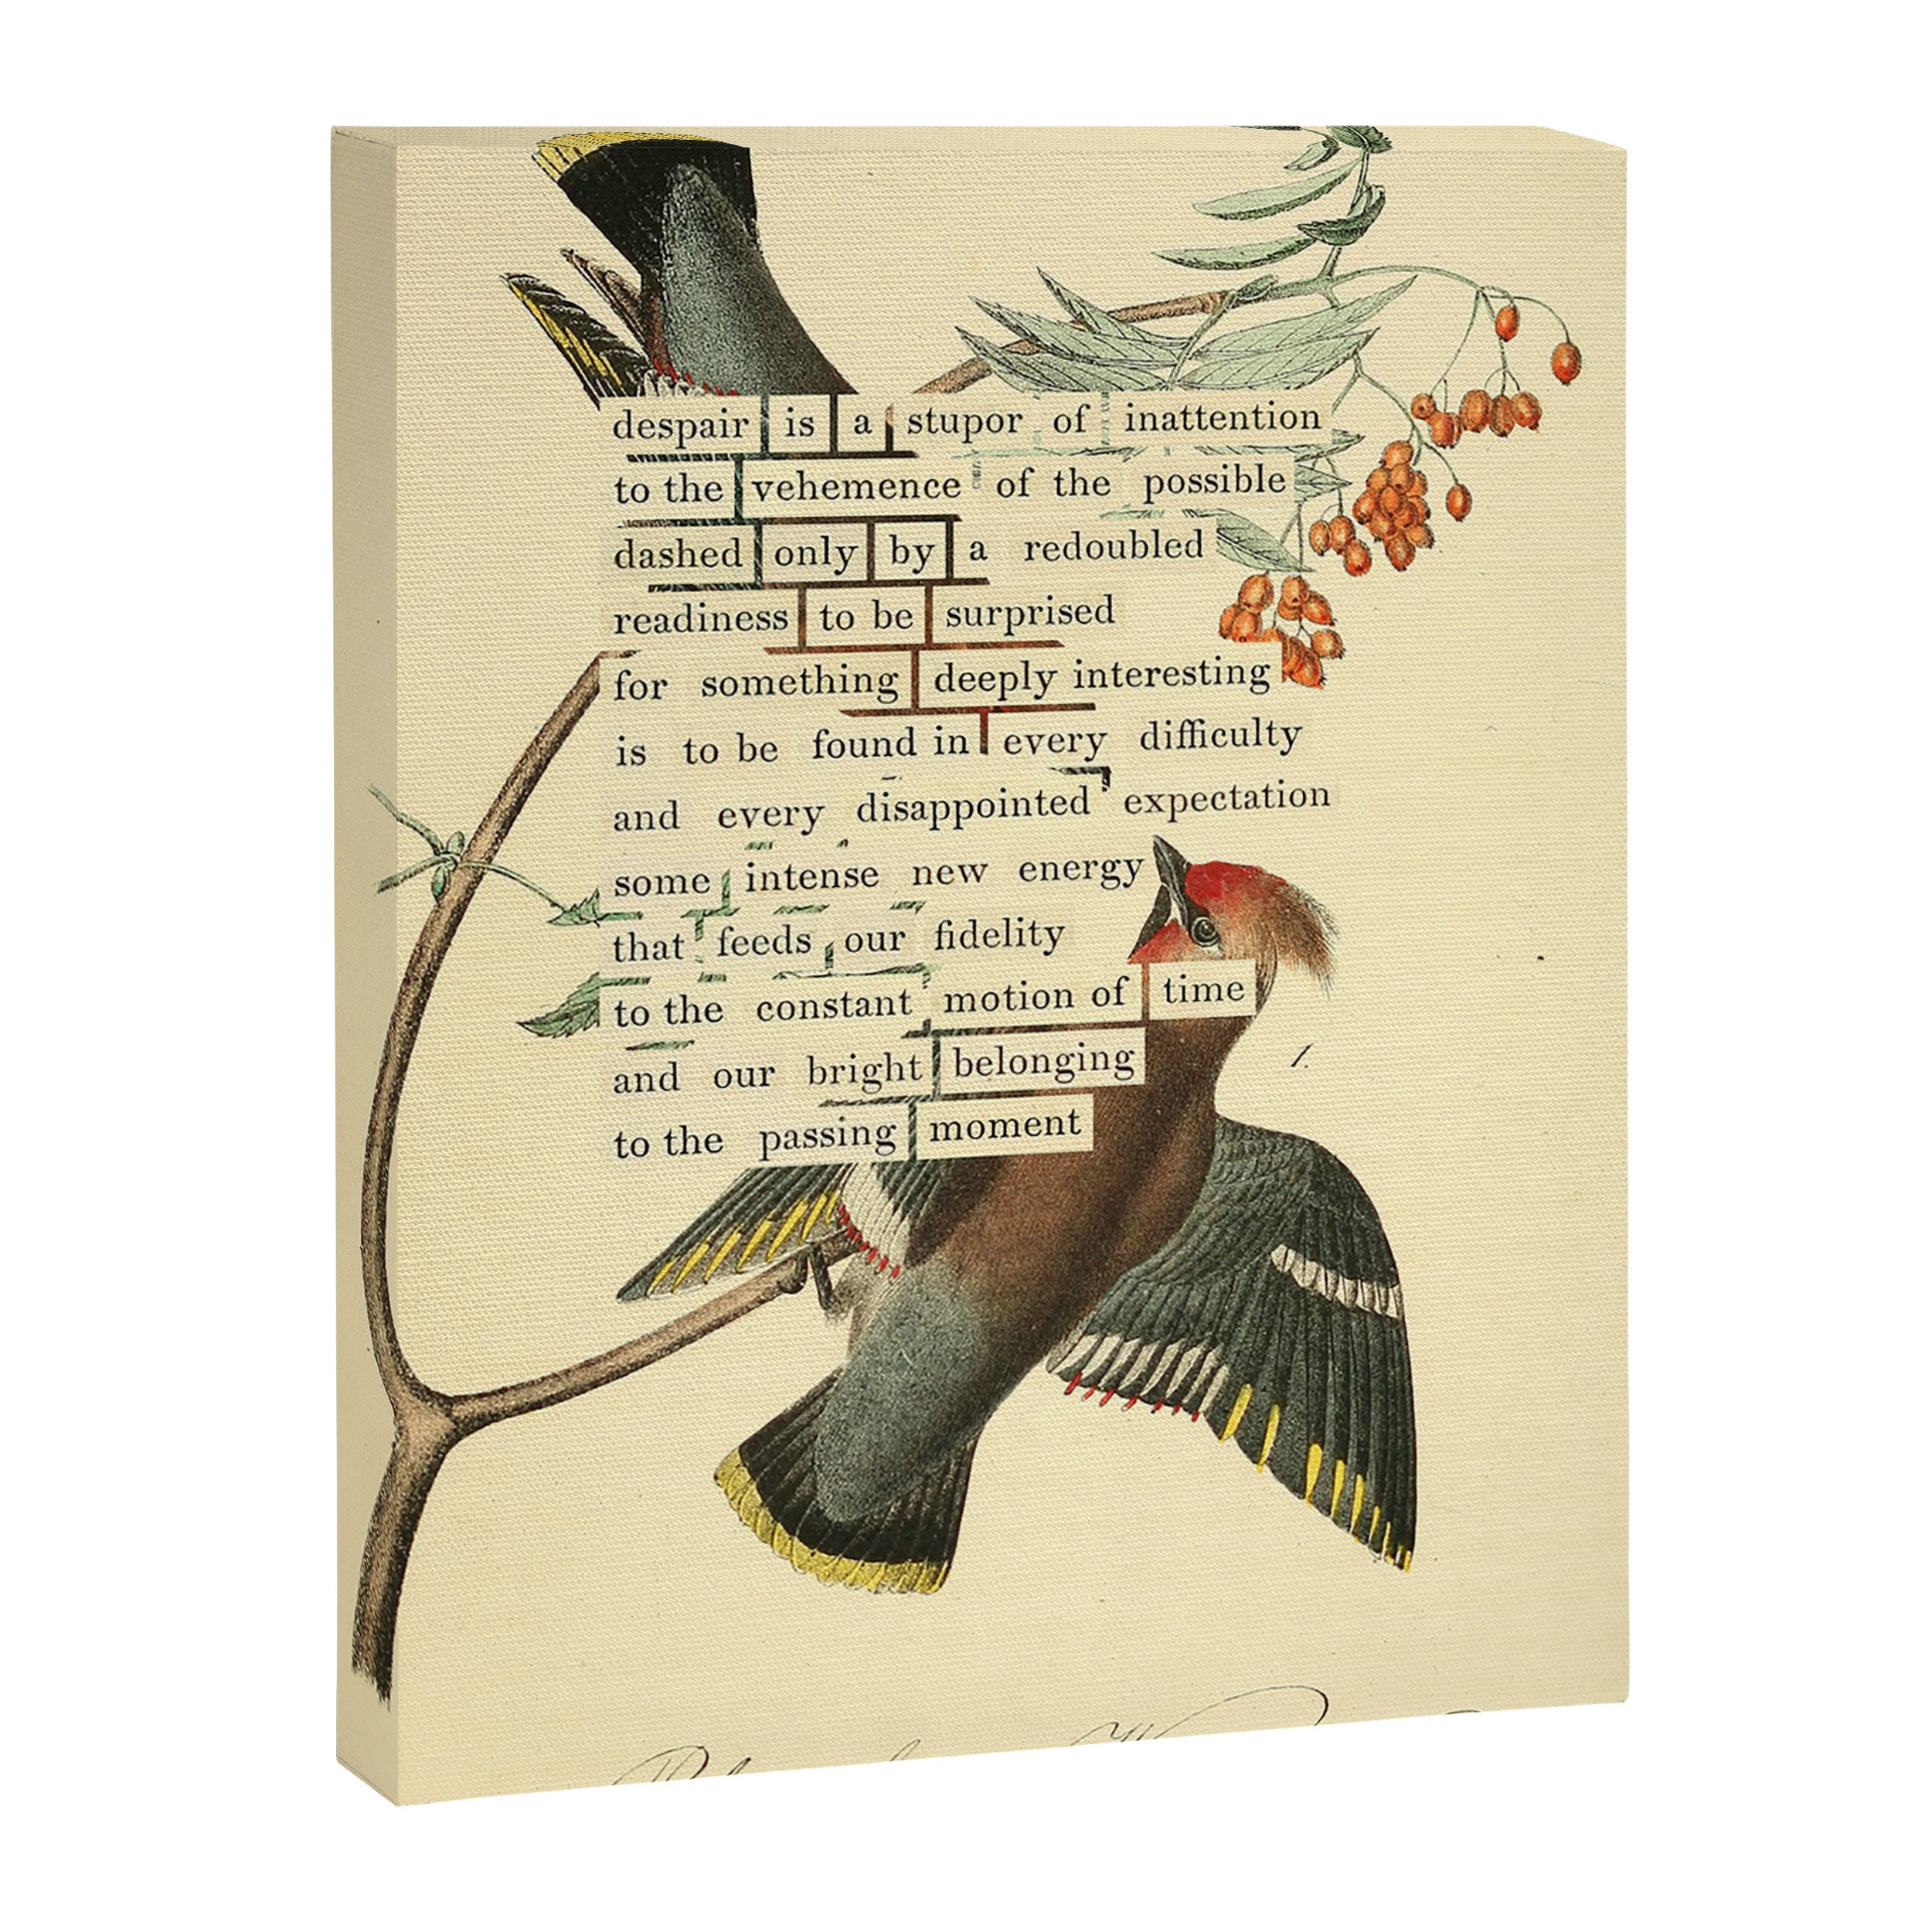 despair is a stupor of inattention
to the vehemence of the possible
dashed only by a redoubled
readiness to be surprised
for something deeply interesting
is to be found in every difficulty
and every disappointed expectation
some intense new energy
that feeds our fidelity
to the constant motion of time
and our bright belonging
to the passing moment
1.